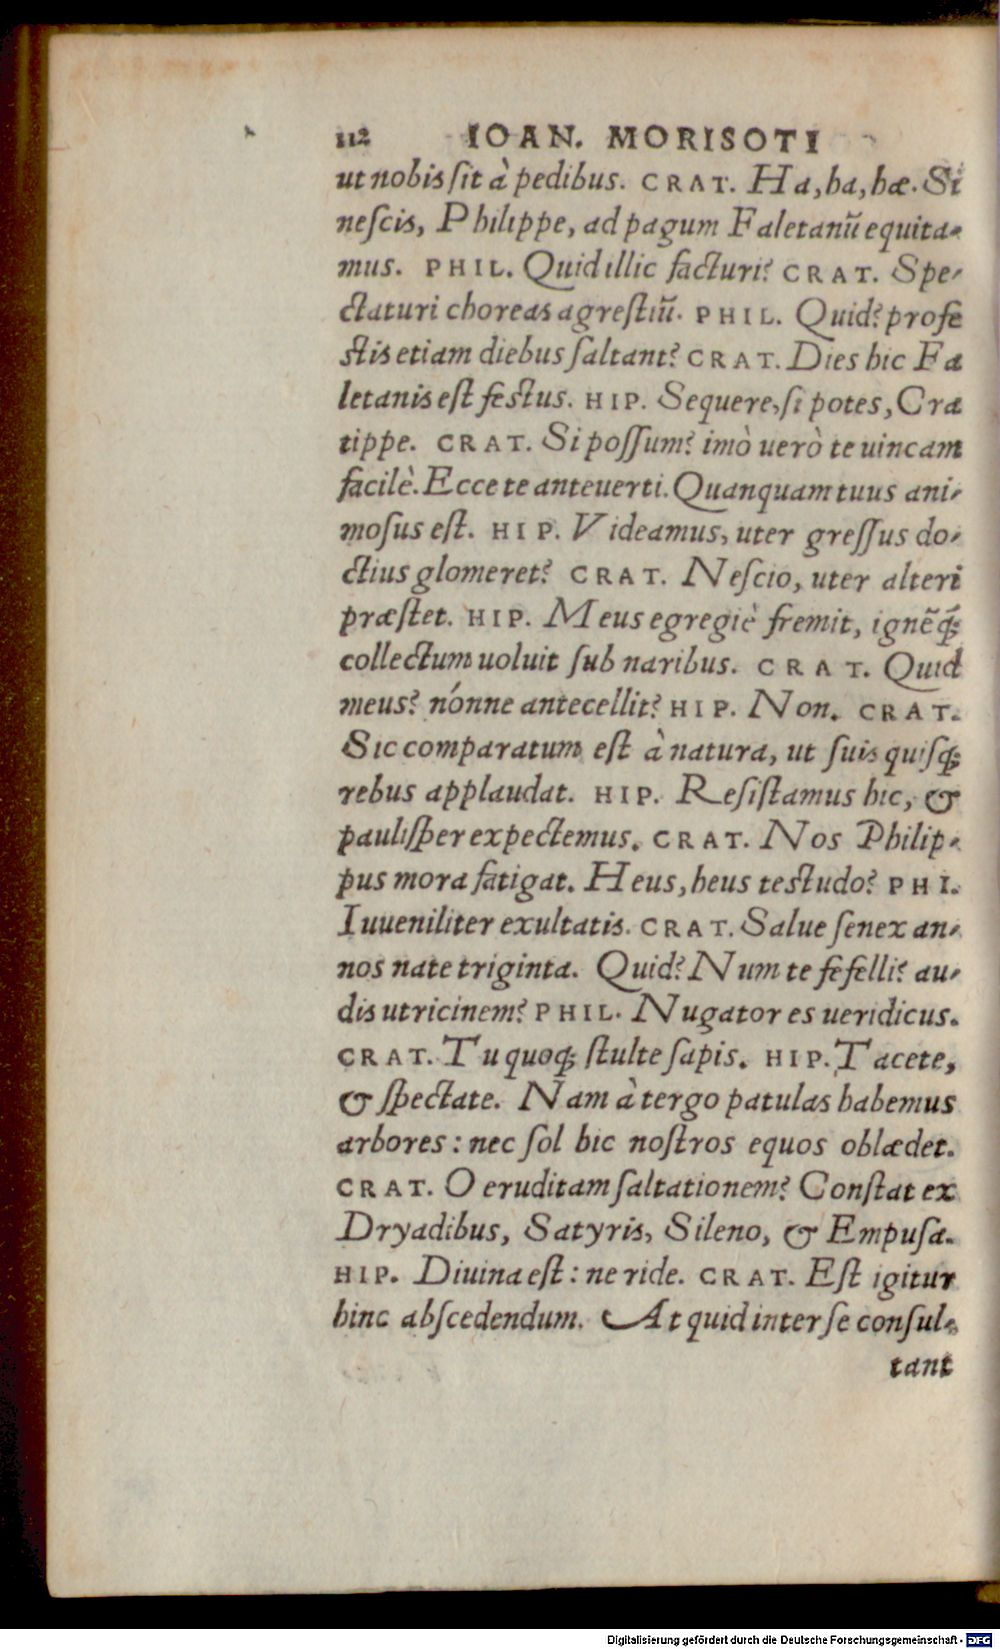 112 IOAN. MORISOTI
ut nobis ſit à pedibus. CRAT. Ha, ha, hæ. Si
neſcis, Philippe, ad pagum Faletanũ equita-
mus. PHIL. Quid illic facturi? CRAT. Spe-
ctaturi choreas agreſtiũ. PHIL. Quid? profe
ſtis etiam diebus ſaltant? CRAT. Dies hic Fa
letanis eſt feſtus. HIP. Sequere, ſi potes, Cra
tippe. CRAT. Si poſſum? imò uerò te uincam
facilè. Ecce te anteuerti. Quanquam tuus ani-
moſus eſt. HIP. Videamus, uter greſſus do-
ctius glomeret? CRAT. Neſcio, uter alteri
præſtet. HIP. Meus egregiè fremit, ignẽq́;
collectum uoluit ſub naribus. CRAT. Quid
meus? nónne antecellit? HIP. Non. CRAT.
Sic comparatum eſt à natura, ut ſuis quiſq;
rebus applaudat. HIP. Reſiſtamus hic, &
pauliſper expectemus. CRAT. Nos Philip-
pus mora fatigat. Heus, heus teſtudo? PHI.
Iuueniliter exultatis. CRAT. Salue ſenex an-
nos nate triginta. Quid? Num te fefelli? au-
dis utricinem? PHIL. Nugator es ueridicus.
CRAT. Tu quoq; ſtulte ſapis. HIP. Tacete,
& ſpectate. Nam à tergo patulas habemus
arbores: nec ſol hic noſtros equos oblædet.
CRAT. O eruditam ſaltationem? Conſtat ex
Dryadibus, Satyris, Sileno, & Empuſa.
HIP. Diuina eſt: ne ride. CRAT. Eſt igitur
hinc abſcedendum. At quid inter ſe conſul-
tant
Digitalisierung gefördert durch die Deutsche Forschungsgemeinschaft - DFG